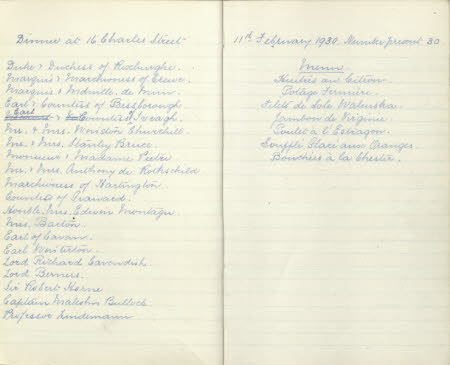 Dinner at 16 Charles Street
Duke & Duchess of Roxburghe.
Marquis & Marchioness of Crewe.
Marquis & Mdville de Mun
Earl & Countess of Bessborough
Earl & Countess Iveagh.
Mr. & Mrs. Winston Churchill
Mr. & Mrs. Stanley Bruce.
Monsieur & Madame Pietri
Mr. & Mrs. Anthony de Rothschild
Marchioness of Hartington.
Countess of
Honble Mrs. Edwin Montagu
Mrs. Barton.
Earl of Cavan.
Earl Winterton.
Lord Richard Cavendish.
Lord Berners.
Sir Robert Horne
Captain Malcolm Bullock
Professor Lindemann.
11th February 1930. Number present 30
Menu.
Huîtres au Citron.
Potage Fermière.
Filets de Sole Waleuska.
Jambon de Virginie.
Poulet à l'Estragon.
Soufflé Glacé aux Oranges.
Bouchées à la Chester.